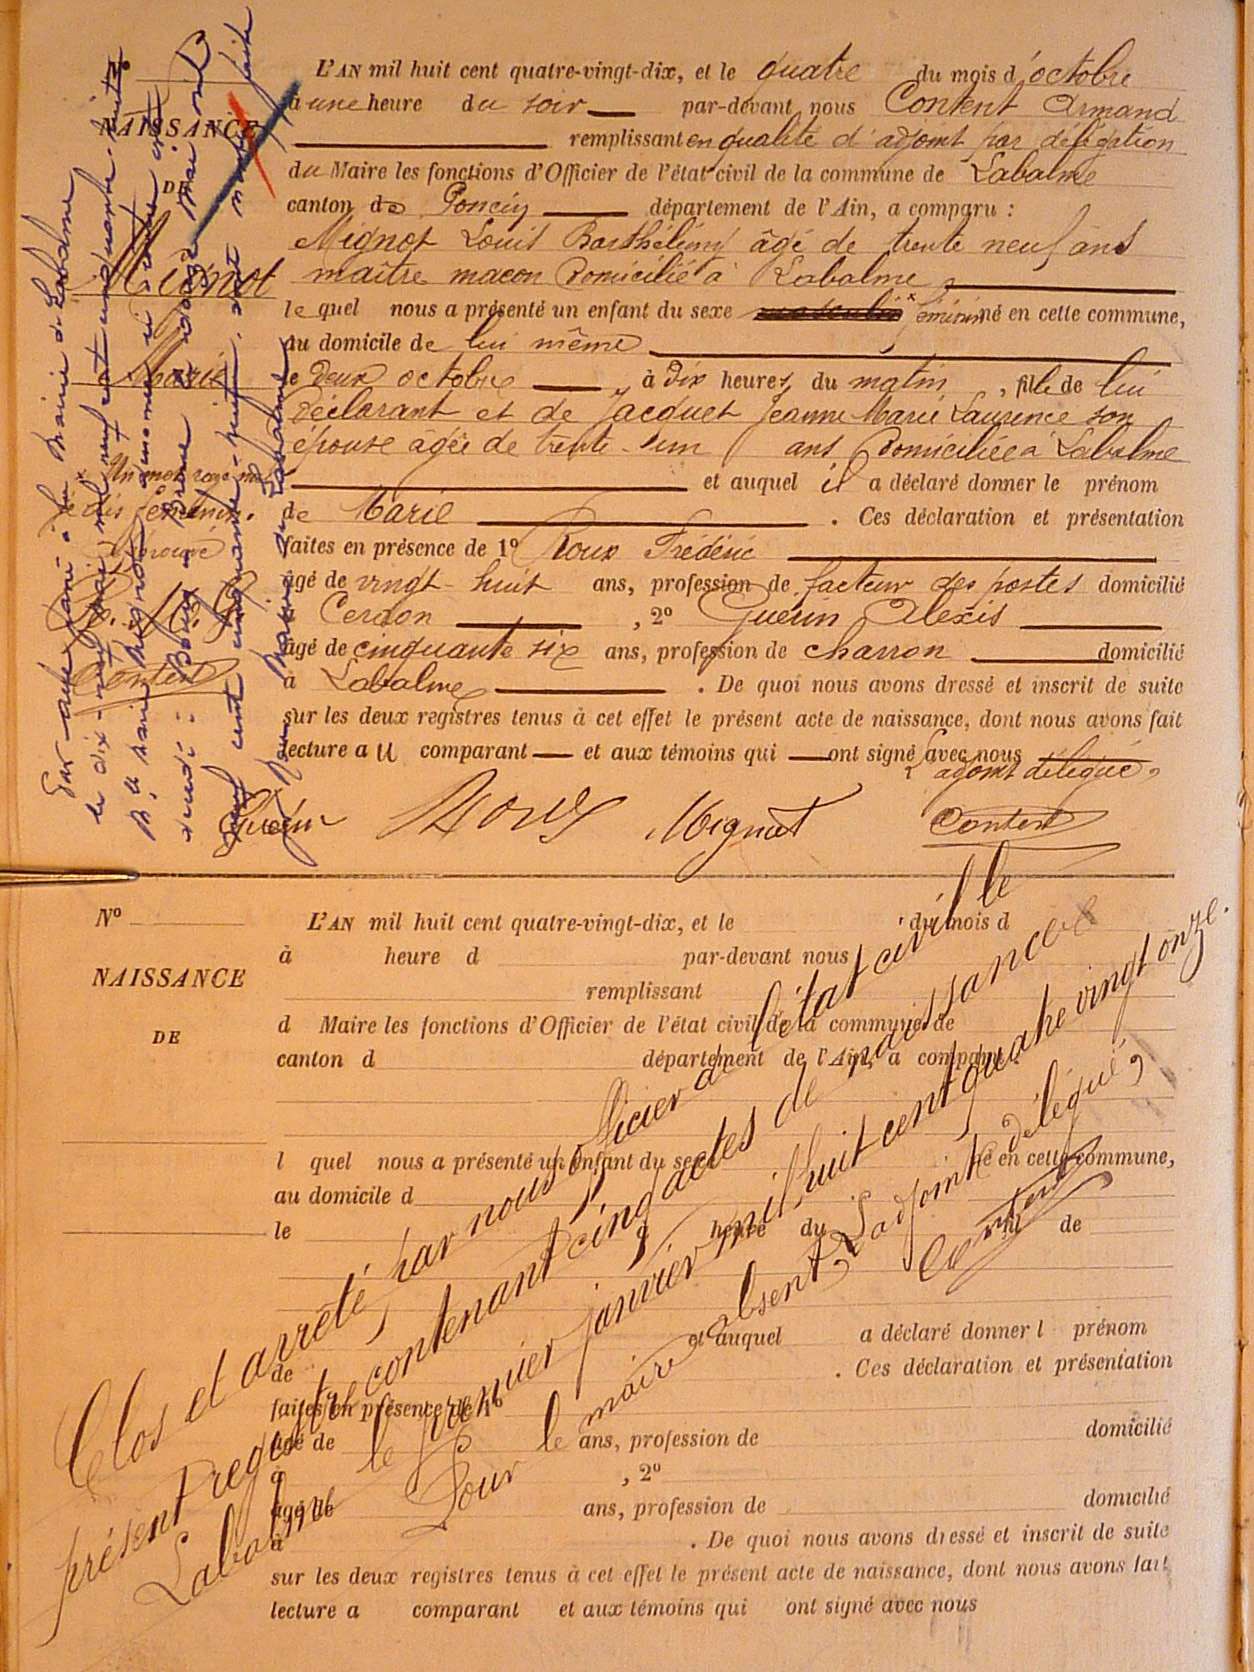 L'AN mil huit cent quatre-vingt-dix, et le quatre du mois d'octobre
à une heure du soir par-devant nous Content Armand
remplissant en qualité d'adjoint par délégation
du Maire les fonctions d'Officier de l'état civil de la commune de Labalme
canton de Poncin département de l'Ain, a comparu :
Mignot Louis Barthélémy âgé de trente neuf ans
maître maçon domicilié à Labalme
le quel nous a présenté un enfant du sexe masculin × féminin né en cette commune,
au domicile de lui même
le deux octobre, à dix heures du matin, fille de lui
déclarant et de Jacquet Jeanne Marie Laurence son
épouse âgée de trente-un ans domiciliée à Labalme
et auquel il a déclaré donner le prénom
de Marie. Ces déclaration et présentation
faites en présence de 1º Roux Frédéric
âgé de vingt-huit ans, profession de facteur des postes domicilié
à Cerdon, 2º Guérin Alexis
âgé de cinquante six ans, profession de charron domicilié
à Labalme. De quoi nous avons dressé et inscrit de suite
sur les deux registres tenus à cet effet le présent acte de naissance, dont nous avons fait
lecture au comparant et aux témoins qui ont signé avec nous
L'adjoint délégué,
Guérin Roux Mignot Content
Nº
NAISSANCE
DE
Mignot
Marie
× Un mot rayé nul
je dis féminin.
Approuvé
Content
Par acte passé à la Mairie de Labalme
le dix-neuf mai mil neuf cent cinquante-huit
Nº
NAISSANCE
DE
L'AN mil huit cent quatre-vingt-dix, et le du mois d
à heure d par-devant nous
remplissant
d Maire les fonctions d'Officier de l'état civil de la commune de
canton d département de l'Ain, a comparu :
l quel nous a présenté un enfant du sexe né en cette commune,
au domicile d
le à heure du , fil de
et auquel a déclaré donner l prénom
de . Ces déclaration et présentation
faites en présence de 1º
âgé de ans, profession de domicilié
à , 2º
âgé de ans, profession de domicilié
à . De quoi nous avons dressé et inscrit de suite
sur les deux registres tenus à cet effet le présent acte de naissance, dont nous avons fait
lecture a comparant et aux témoins qui ont signé avec nous
Clos et arrêté, par nous officier de l'état civil le
présent registre contenant cinq actes de naissances
Labalme le premier janvier mil huit cent quatre vingt onze.
Pour le maire absent, L'adjoint délégué,
Content